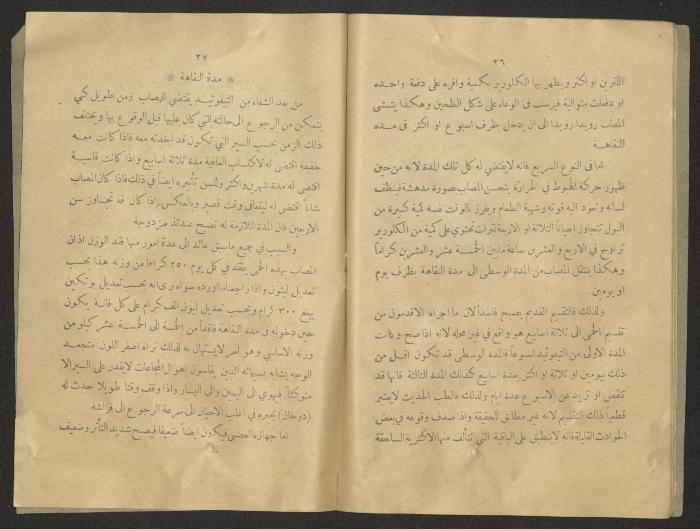 ٢٦
اللترين او اكثر ويظهر بها الكلورير بكمية وافرة على دفعة واحدة
او دفعات متوالية فيرسب فى الوعاء على شكل الطحين وهكذا يتمشى
المصاب رويدا رويدا الى ان يدخل بظرف اسبوع او اكثر فى مدة
النقاهة
اما فى النوع السريع فانه لا يقتضي له كل تلك المدة لانه من حين
ظهور حركة الهبوط في الحرارة يتحسن المصاب بصورة مدهشة فينظف
لسانه وتعود اليه قوته وشهية الطعام ويفرز بالوقت نفسه كمية كبيرة من
البول تتجاوز احيانا الثلاثة او الاربعة لترات تحتوي على كمية من الكلورير
تراوح في الاربع والعشرين ساعة ما بين الخمسة عشر والعشرين كراماً
وهكذا ينتقل المصاب من المدة الوسطى الى مدة النقاهة بظرف يوم
او يومين
ولذلك فالتقسيم القديم يصبح فاسداً لان ما اجراه الاقدمون من
تقسيم الحمى الى ثلاثة اسابيع هو واقع في غير محله لانه اذا صح وكانت
المدة الاولى من التيفوئيد اسبوعاً فالمدة الوسطى قد تكون اقل من
ذلك بيومين او ثلاثة او اكثر بعدة اسابيع كذلك المدة الثالثة فانها قد
تنقص او تزيد عن الاسبوع عدة ايام ولذلك فالطب الحديث لا يعتبر
قطعياً ذلك التقسيم لانه غير مطابق للحقيقة واذا صدف وقوعه في بعض
الحوادث القليلة فانه لا ينطبق على الباقية التي تتألف منها الاكثرية الساحقة
٢٧
❋ مدة النقاهة ❋
من بعد الشفاء من التيفوئيد يقتضي للمصاب زمن طويل كي
يتمكن من الرجوع الى حالته التي كان عليها قبل الوقوع بها ويختلف
ذلك الزمن بحسب السير التي تكون قد اخذته معه فاذا كانت معه
خفيفة اقتضى له لاكتساب العافية مدة ثلاثة اسابيع واذا كانت قاسية
اقتضى له مدة شهرين واكثر وللسن تأثيره ايضاً في ذلك فاذا كان المصاب
شاباً اقتضى له ليتعافى وقت قصير وبالعكس اذا كان قد تجاوز سن
الاربعين فان المدة اللازمة له تصبح عندئذ مزدوجة
والسبب في جميع ما سبق عائد الى عدة امور منها فقد الوزن اذ ان
المصاب بهذه الحمى يفقد في كل يوم ٢٥٠ كراماً من وزنه هذا بحسب
تعديل ليتون واذا راجعنا ما اورده سواه نرى انه بحسب تعديل بوتكين
يبلغ ٣٠٠ كرام وبحسب تعديل ليون الف كرام على كل فانه يكون
حين دخوله فى مدة النقاهة فاقداً من الخمسة الى الخمسة عشر كيلو من
وزنه الاساسي وهو امر لا يستهان به لذلك نراه اصفر اللون متجعد
الوجه يشابه بسيمائه الذين يقاسون اهوال المجاعات لا يقدر على السير الا
متوكئاً فيهوي الى اليمين والى اليسار واذا وقف وقتا طويلا حدث له
(دوخان) يجبره في اغلب الاحيان الى سرعة الرجوع الى فراشه
اما جهازه العصبي فيكون ايضاً ضعيفا فيصبح شديد التأثر وضعيف